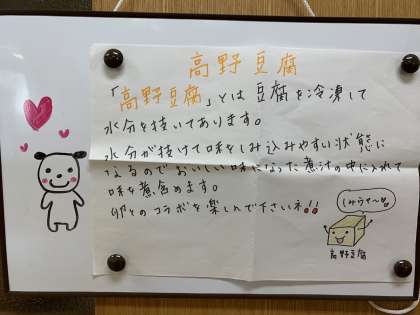 高野豆腐
「高野豆腐」とは豆腐を冷凍して
水分を抜いてあります。
水分が抜けて味をしみ込みやすい状態に
なるのでおいしい味になった煮汁の中に入れて
味を煮含めます。
卵とのコラボを楽しんで下さいネ!!
高野豆腐